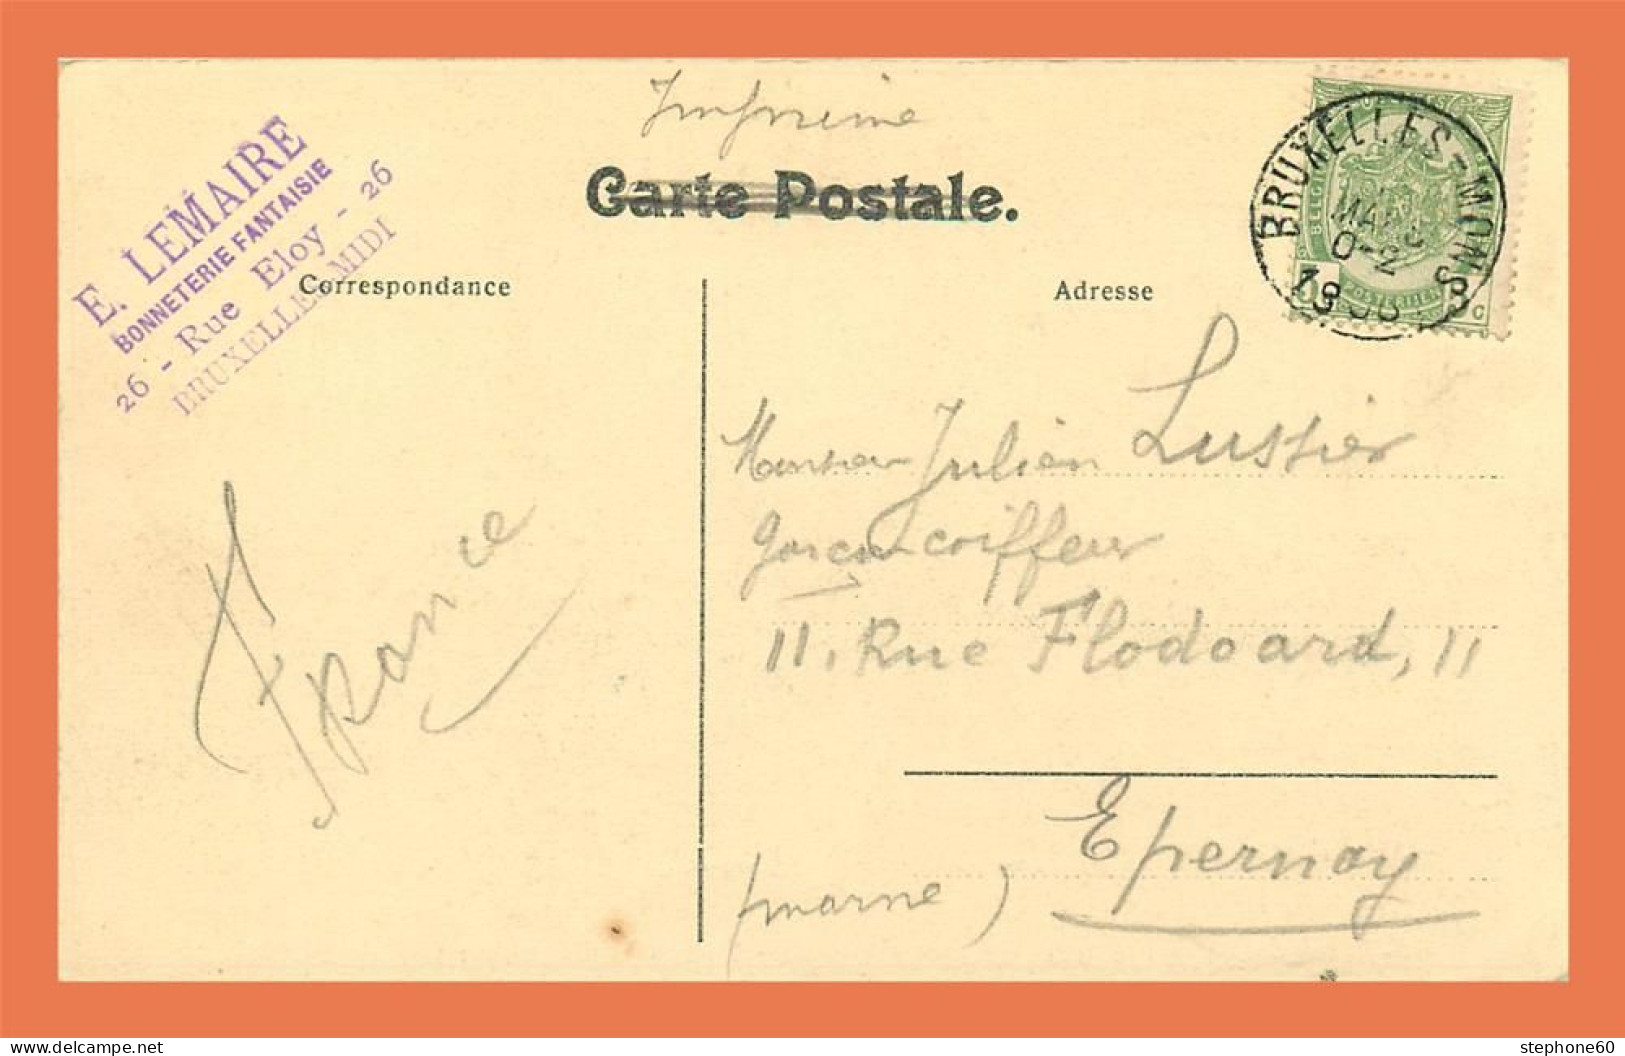 Imprimé
Carte Postale.
E. LEMAIRE
BONNETERIE FANTAISIE
26 - Rue Eloy - 26
BRUXELLES-MIDI
Correspondance
Adresse
BRUXELLES-MONS
BELGIQUE
POSTERIJEN
Monsieur Julien Lussier
garçon coiffeur
11, Rue Flodoard, 11
France
Epernay
(marne)
www.delcampe.net
stephone60